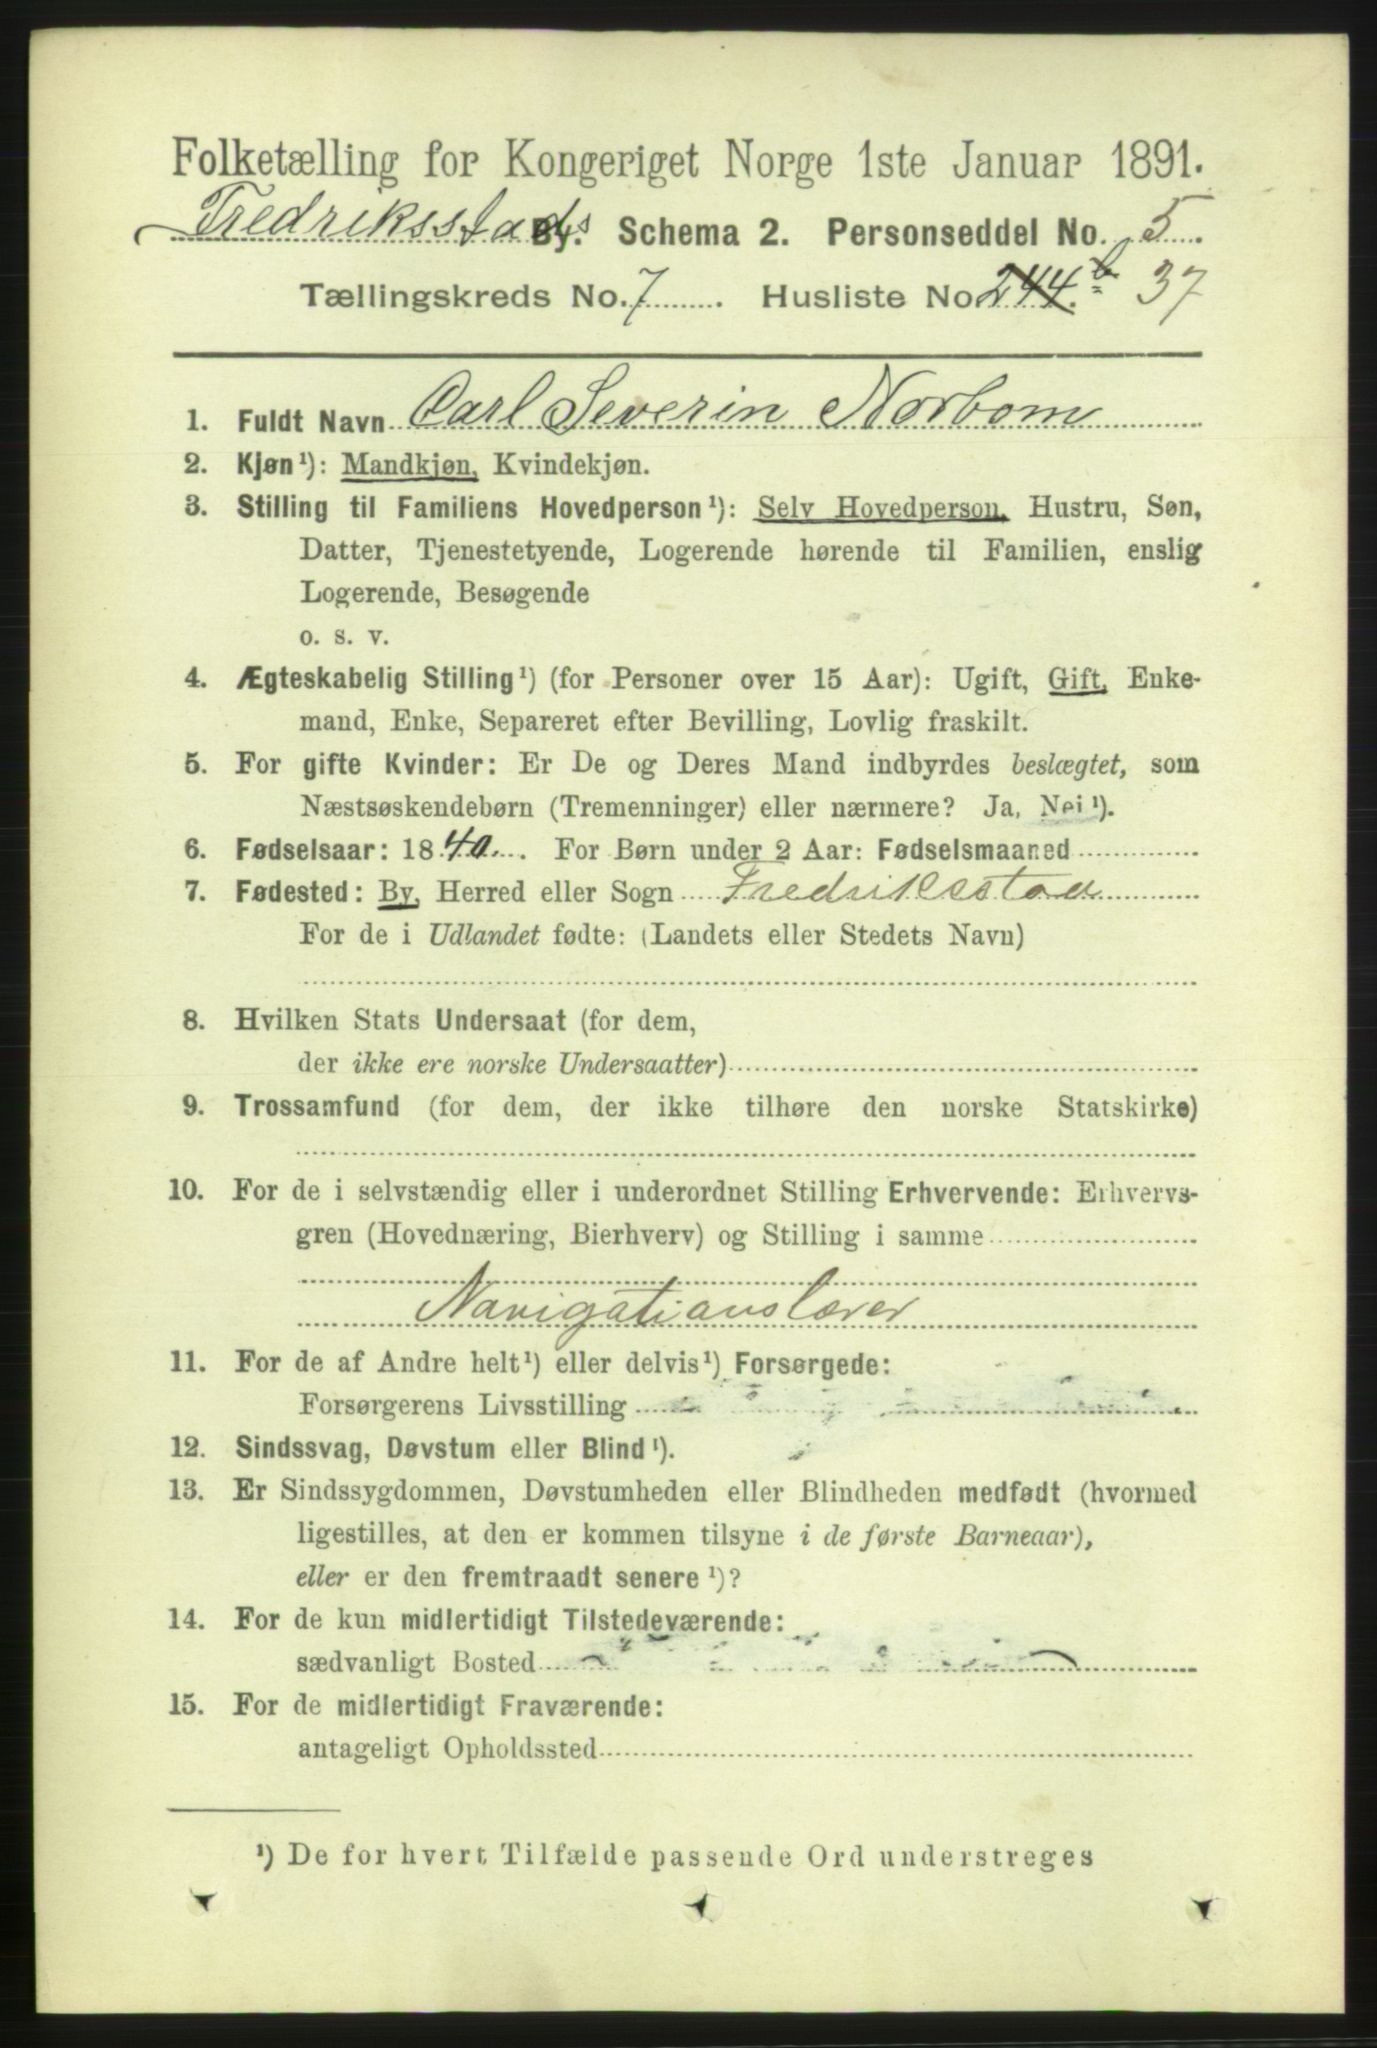 Folketælling for Kongeriget Norge 1ste Januar 1891.
Fredriksstads By. Schema 2. Personseddel No. 5
Tællingskreds No. 7 Husliste No. 244.b 37
1. Fuldt Navn Carl Severin Norbom
2. Kjøn¹): Mandkjøn, Kvindekjøn.
3. Stilling til Familiens Hovedperson¹): Selv Hovedperson, Hustru, Søn,
Datter, Tjenestetyende, Logerende hørende til Familien, enslig
Logerende, Besøgende
o. s. v.
4. Ægteskabelig Stilling¹) (for Personer over 15 Aar): Ugift, Gift, Enke-
mand, Enke, Separeret efter Bevilling, Lovlig fraskilt.
5. For gifte Kvinder: Er De og Deres Mand indbyrdes beslægtet, som
Næstsøskendebørn (Tremenninger) eller nærmere? Ja, Nei¹).
6. Fødselsaar: 1840. For Børn under 2 Aar: Fødselsmaaned
7. Fødested: By, Herred eller Sogn Fredriksstad
For de i Udlandet fødte: (Landets eller Stedets Navn)
8. Hvilken Stats Undersaat (for dem,
der ikke ere norske Undersaatter)
9. Trossamfund (for dem, der ikke tilhøre den norske Statskirke)
10. For de i selvstændig eller i underordnet Stilling Erhvervende: Erhvervs-
gren (Hovednæring, Bierhverv) og Stilling i samme
Navigationslærer
11. For de af Andre helt¹) eller delvis¹) Forsørgede:
Forsørgerens Livsstilling
12. Sindssvag, Døvstum eller Blind¹).
13. Er Sindssygdommen, Døvstumheden eller Blindheden medfødt (hvormed
ligestilles, at den er kommen tilsyne i de første Barneaar),
eller er den fremtraadt senere¹)?
14. For de kun midlertidigt Tilstedeværende:
sædvanligt Bosted
15. For de midlertidigt Fraværende:
antageligt Opholdssted
¹) De for hvert Tilfælde passende Ord understreges